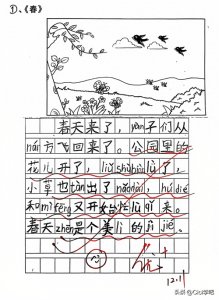 ①、《春》
春天来了，yàn子们从
nán方飞回来了。公园里的
花儿开了，liǔ shù lǜ了，
小草也tàn出了nǎodɑi，hú dié
和mì fēng又开始忙lù起来。
春天zhēn是个美lì的jì jié。
12.11
头条 @Cici学吧